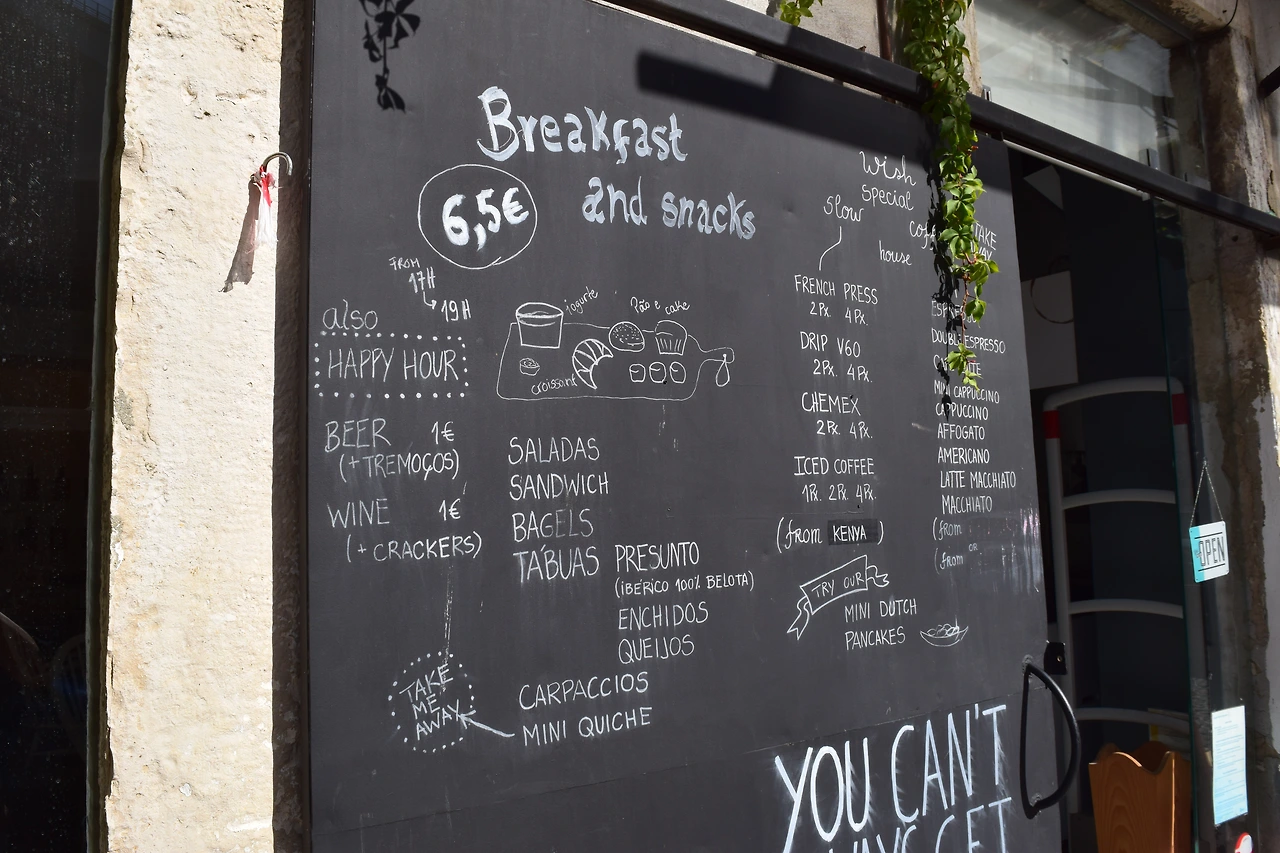 Breakfast
and snacks
6,5€
FROM
17H
19H
also
HAPPY HOUR
BEER 1€
(+TREMOÇOS)
WINE 1€
(+ CRACKERS)
iogurte
Pão e cake
croissant
SALADAS
SANDWICH
BAGELS
TÁBUAS PRESUNTO
(IBÉRICO 100% BELOTA)
ENCHIDOS
QUEIJOS
TAKE
ME
AWAY
CARPACCIOS
MINI QUICHE
Wish
special
house
slow
FRENCH PRESS
2Px. 4Px.
DRIP V60
2Px. 4Px.
CHEMEX
2Px. 4Px.
ICED COFFEE
1Px. 2Px. 4Px.
(from KENYA)
TRY OUR
MINI DUTCH
PANCAKES
TAKE
ESPRESSO
DOUBLE ESPRESSO
MINI CAPPUCCINO
CAPPUCCINO
AFFOGATO
AMERICANO
LATTE MACCHIATO
MACCHIATO
(from
OR
(from
YOU CAN'T
GET
OPEN